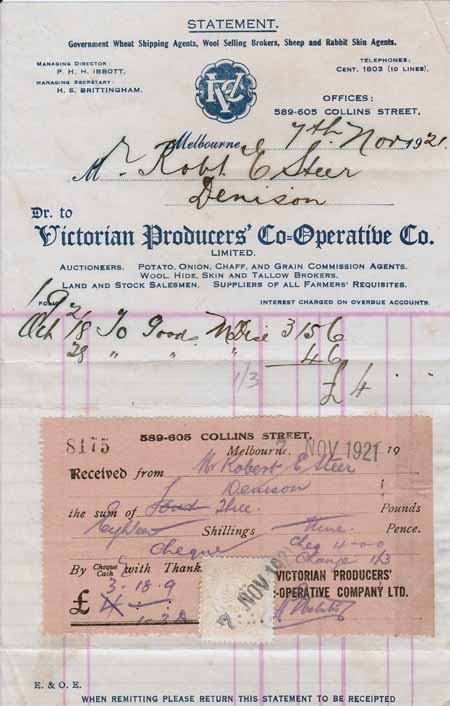 STATEMENT.
Government Wheat Shipping Agents, Wool Selling Brokers, Sheep and Rabbit Skin Agents.
MANAGING DIRECTOR:
P. H. H. IBBOTT.
MANAGING SECRETARY:
H. S. BRITTINGHAM.
TELEPHONES:
CENT. 1603 (10 LINES).
OFFICES:
589-605 COLLINS STREET.
Melbourne, 7th Nov 1921.
Mr Robt E Steer
Denison
Dr. to
Victorian Producers' Co=Operative Co.
LIMITED.
AUCTIONEERS. POTATO, ONION, CHAFF, AND GRAIN COMMISSION AGENTS.
WOOL, HIDE, SKIN AND TALLOW BROKERS.
LAND AND STOCK SALESMEN. SUPPLIERS OF ALL FARMERS' REQUISITES.
INTEREST CHARGED ON OVERDUE ACCOUNTS.
192
Oct 18 To Goods Mdise 3 15 6
28 " " " 4 6
1/3 £4
8175
589-605 COLLINS STREET.
Melbourne, 7 NOV 1921 19
Received from Mr Robert E Steer
Denison
the sum of Three Pounds
Eighteen Shillings Nine Pence.
Cheque Chq 4-0-0
Change 1/3
By Cheque Cash with Thanks
3-18-9
£
7 NOV 192
VICTORIAN PRODUCERS'
-OPERATIVE COMPANY LTD.
E. & O. E.
WHEN REMITTING PLEASE RETURN THIS STATEMENT TO BE RECEIPTED